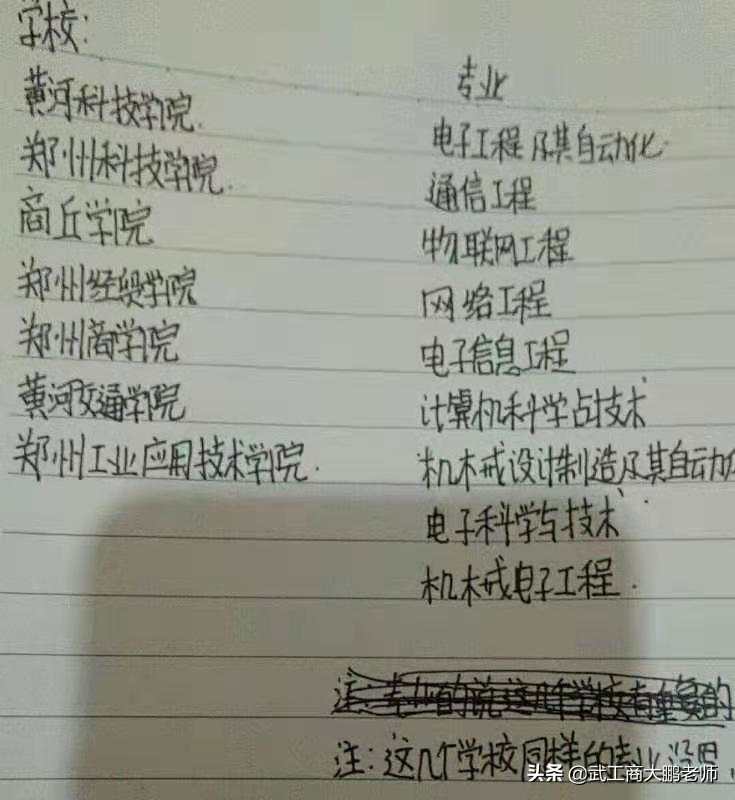 学校:
黄河科技学院.
郑州科技学院.
商丘学院
郑州经贸学院
郑州商学院
黄河交通学院
郑州工业应用技术学院.
专业
电子工程及其自动化
通信工程
物联网工程
网络工程
电子信息工程
计算机科学与技术
机械设计制造及其自动化
电子科学与技术
机械电子工程.
注:这几个学校同样的专业没
头条@武工商大鹏老师